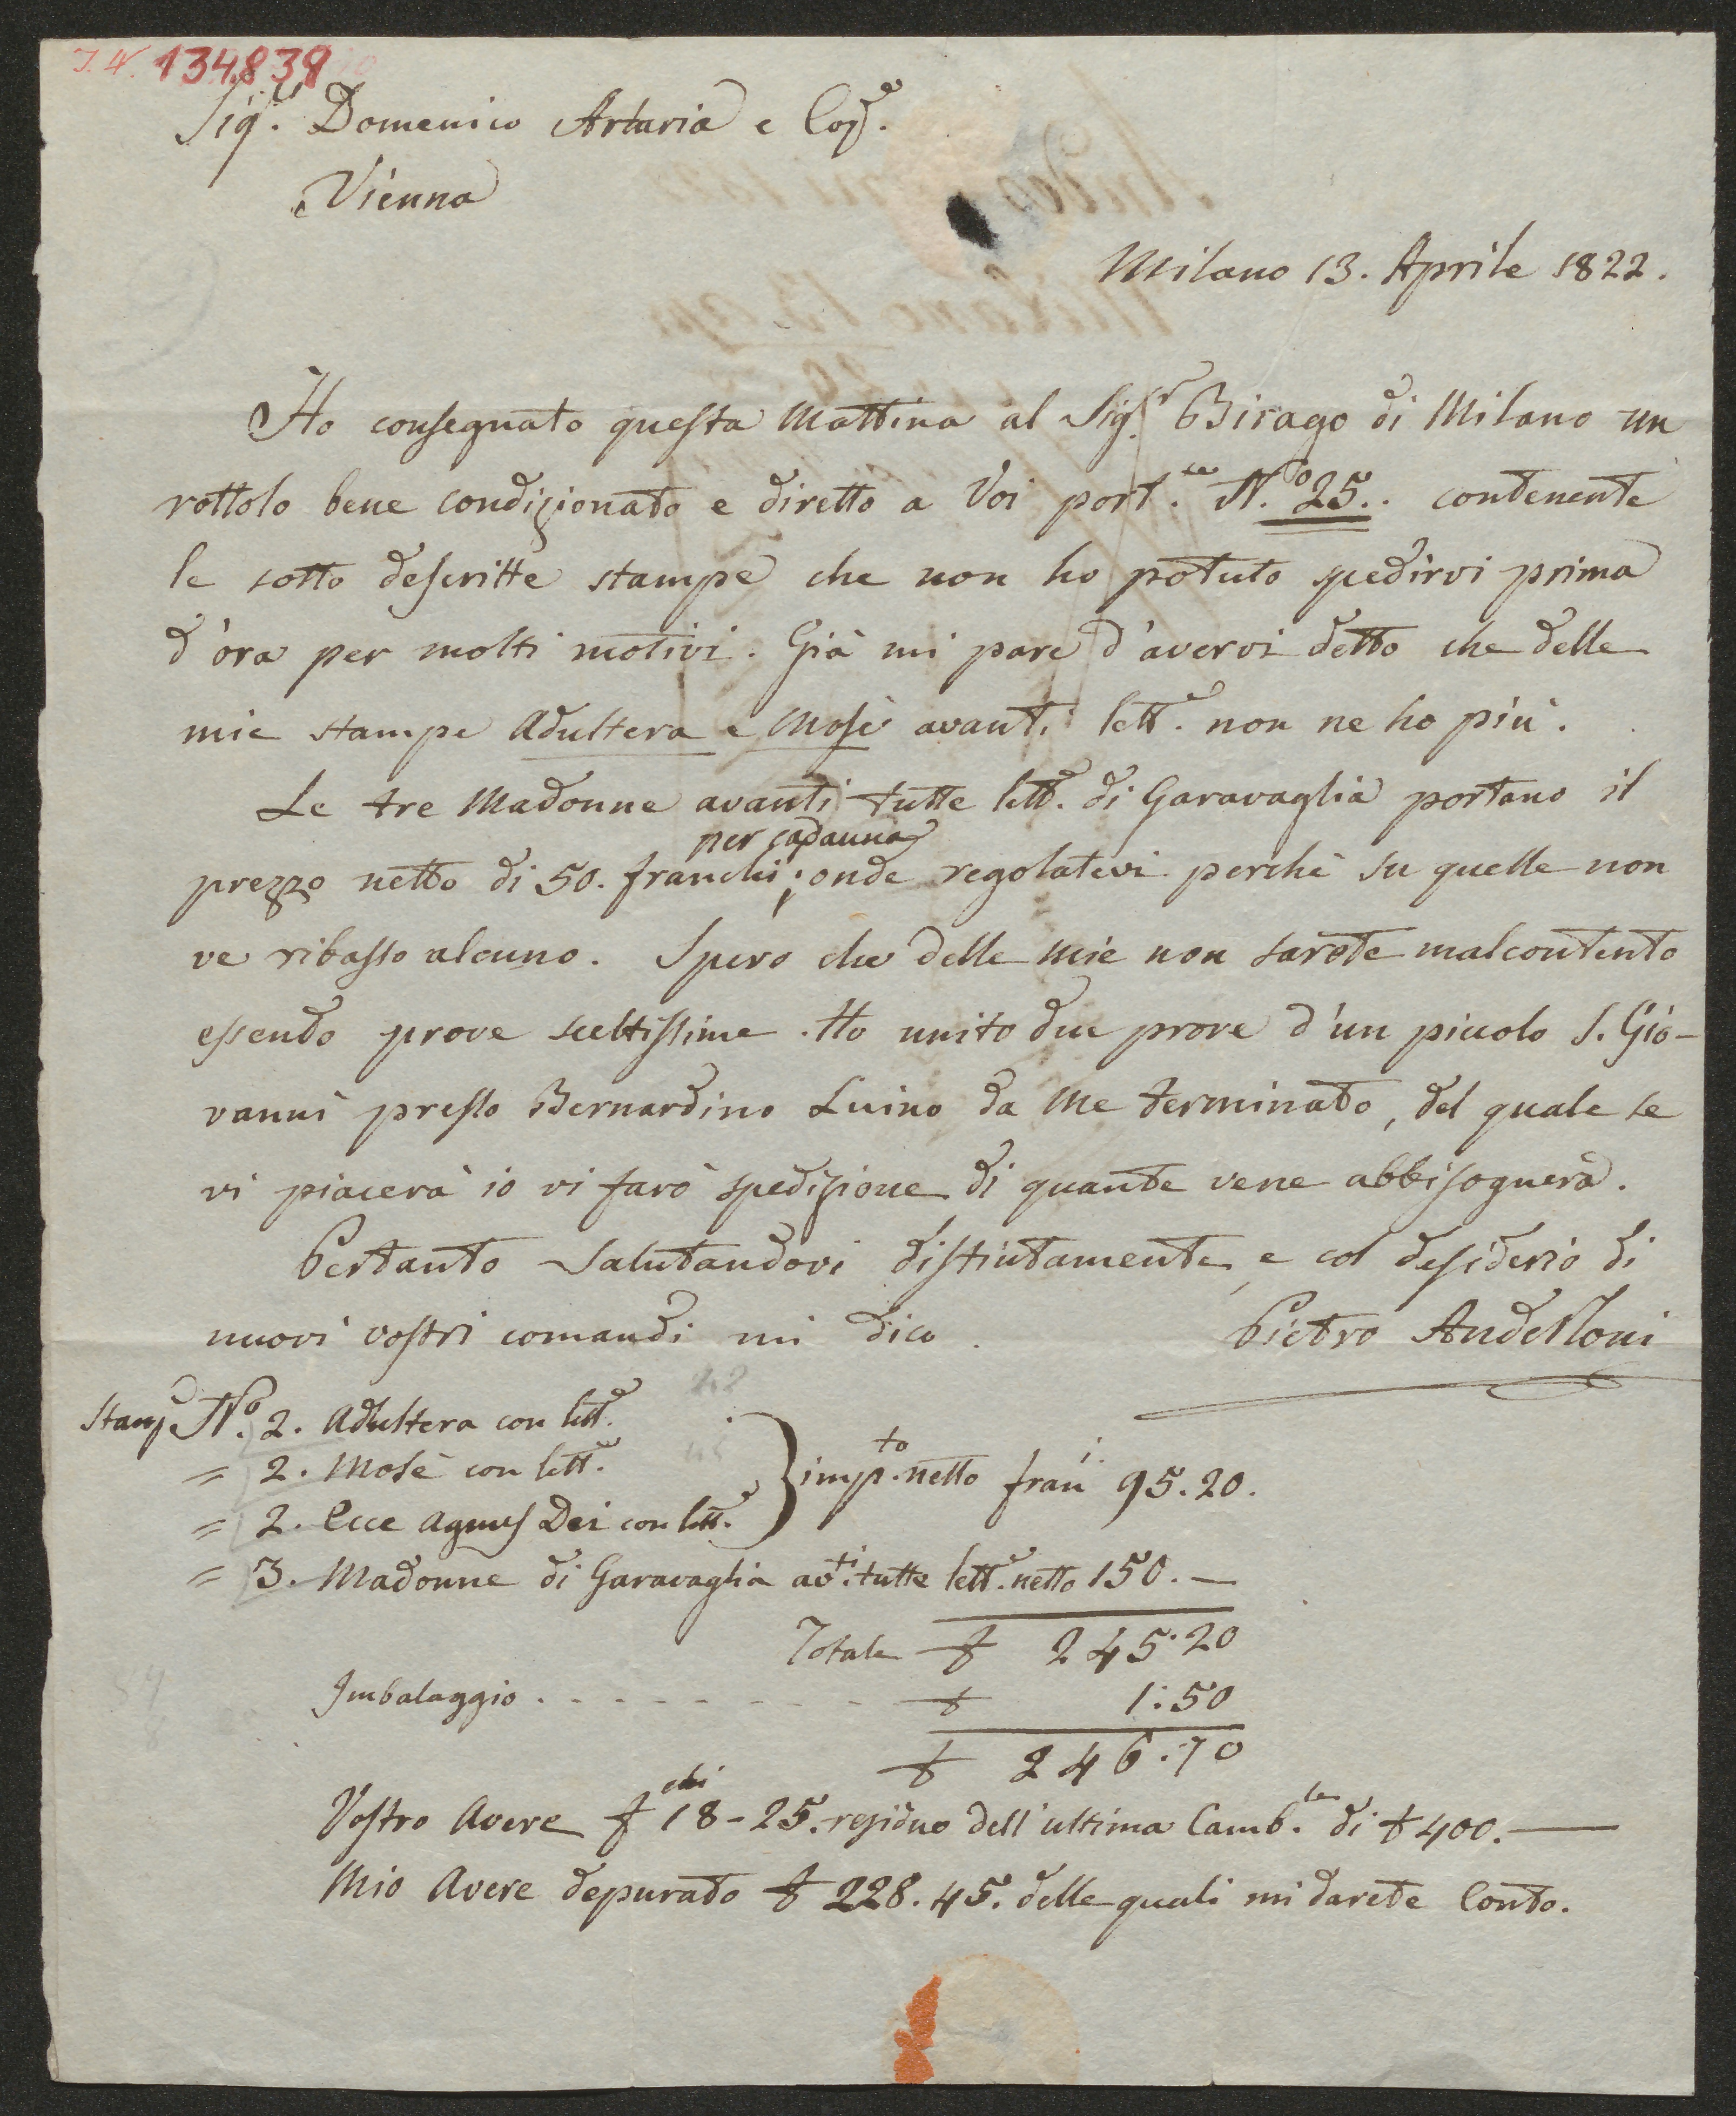 J.N. 134.839
Sig.ri Domenico Artaria e Cop.e
Vienna
Milano 13. Aprile 1822.
Ho consegnato questa Mattina al Sig.r Birago di Milano un
rottolo bene condizionato e diretto a Voi port.te N.o 25.. contenente
le sotto descritte stampe che non ho potuto spedirvi prima
d'ora per molti motivi. Già mi pare d'avervi detto che delle
mie stampe Adultera e Mosè avanti lett.e non ne ho più.
Le tre Madonne avanti tutte lett.e di Garavaglia portano il
per cadauna
prezzo netto di 50. franchi; onde regolatevi perchè su quelle non
ve ribasso alcuno. Spero che delle mie non sarete malcontento
essendo prove sceltissime. Ho unito due prove d'un piccolo S. Gio-
vanni presso Bernardino Luino da me terminato, del quale se
vi piacerà io vi farò spedizione di quante vene abbisognerà.
Pertanto salutandovi distintamente, e col desiderio di
nuovi vostri comandi mi dico. Pietro Anderloni
Stamp.e N.o 2. Adultera con lett.e
= 2. Mosè con lett.e
= 2. Ecce Agnus Dei con lett.e } imp.to netto fran.i 95.20.
= 3. Madonne di Garavaglia av.ti tutte lett.e netto 150.—
Totale f 245.20
Imbalaggio . - - - - - - - - f 1:50
f 246.70
Vostro Avere f.chi 18-25. residuo dell'ultima Camb.le di f 400.—
Mio Avere depurato f 228.45. delle quali mi darete Conto.